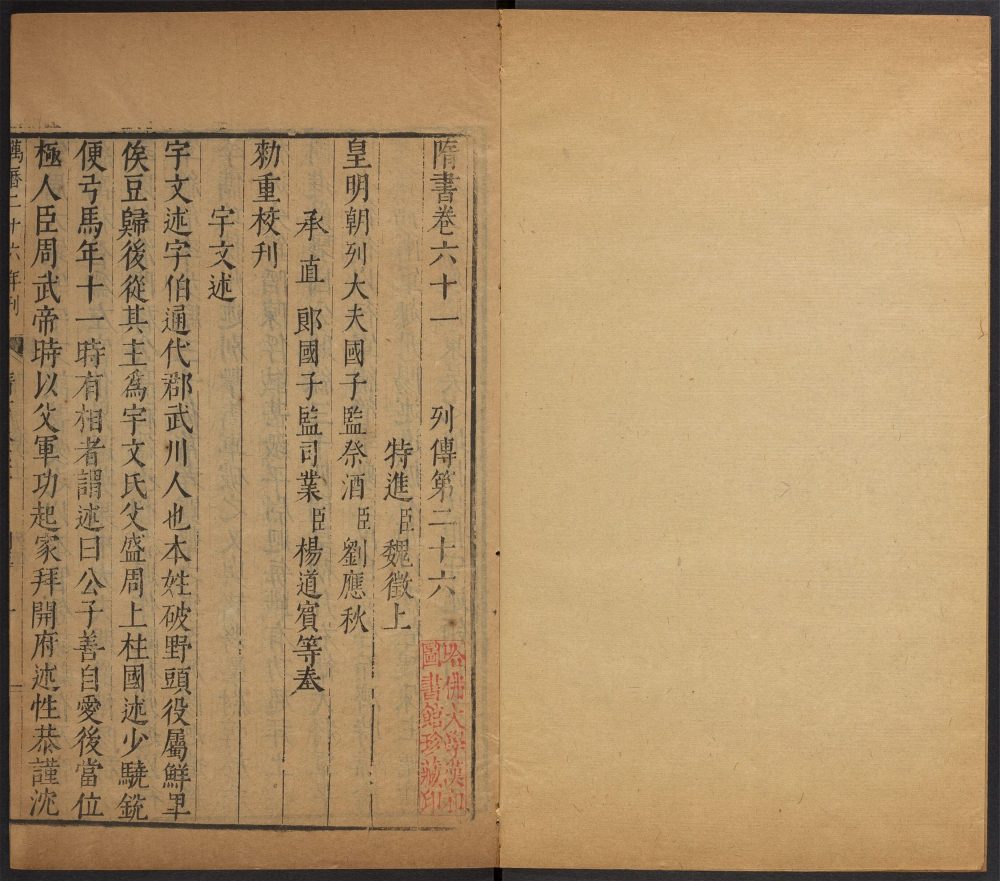 隋書卷六十一 列傳第二十六
特進臣魏徵上
皇明朝列大夫國子監祭酒臣劉應秋
承直郎國子監司業臣楊道賓等奉
勑重校刊
宇文述
宇文述字伯通代郡武川人也本姓破野頭役屬鮮卑
俟豆歸後從其主爲宇文氏父盛周上柱國述少驍銳
便弓馬年十一時有相者謂述曰公子善自愛後當位
極人臣周武帝時以父軍功起家拜開府述性恭謹沈
萬曆二十六年刊
哈佛大學漢和
圖書館珍藏印